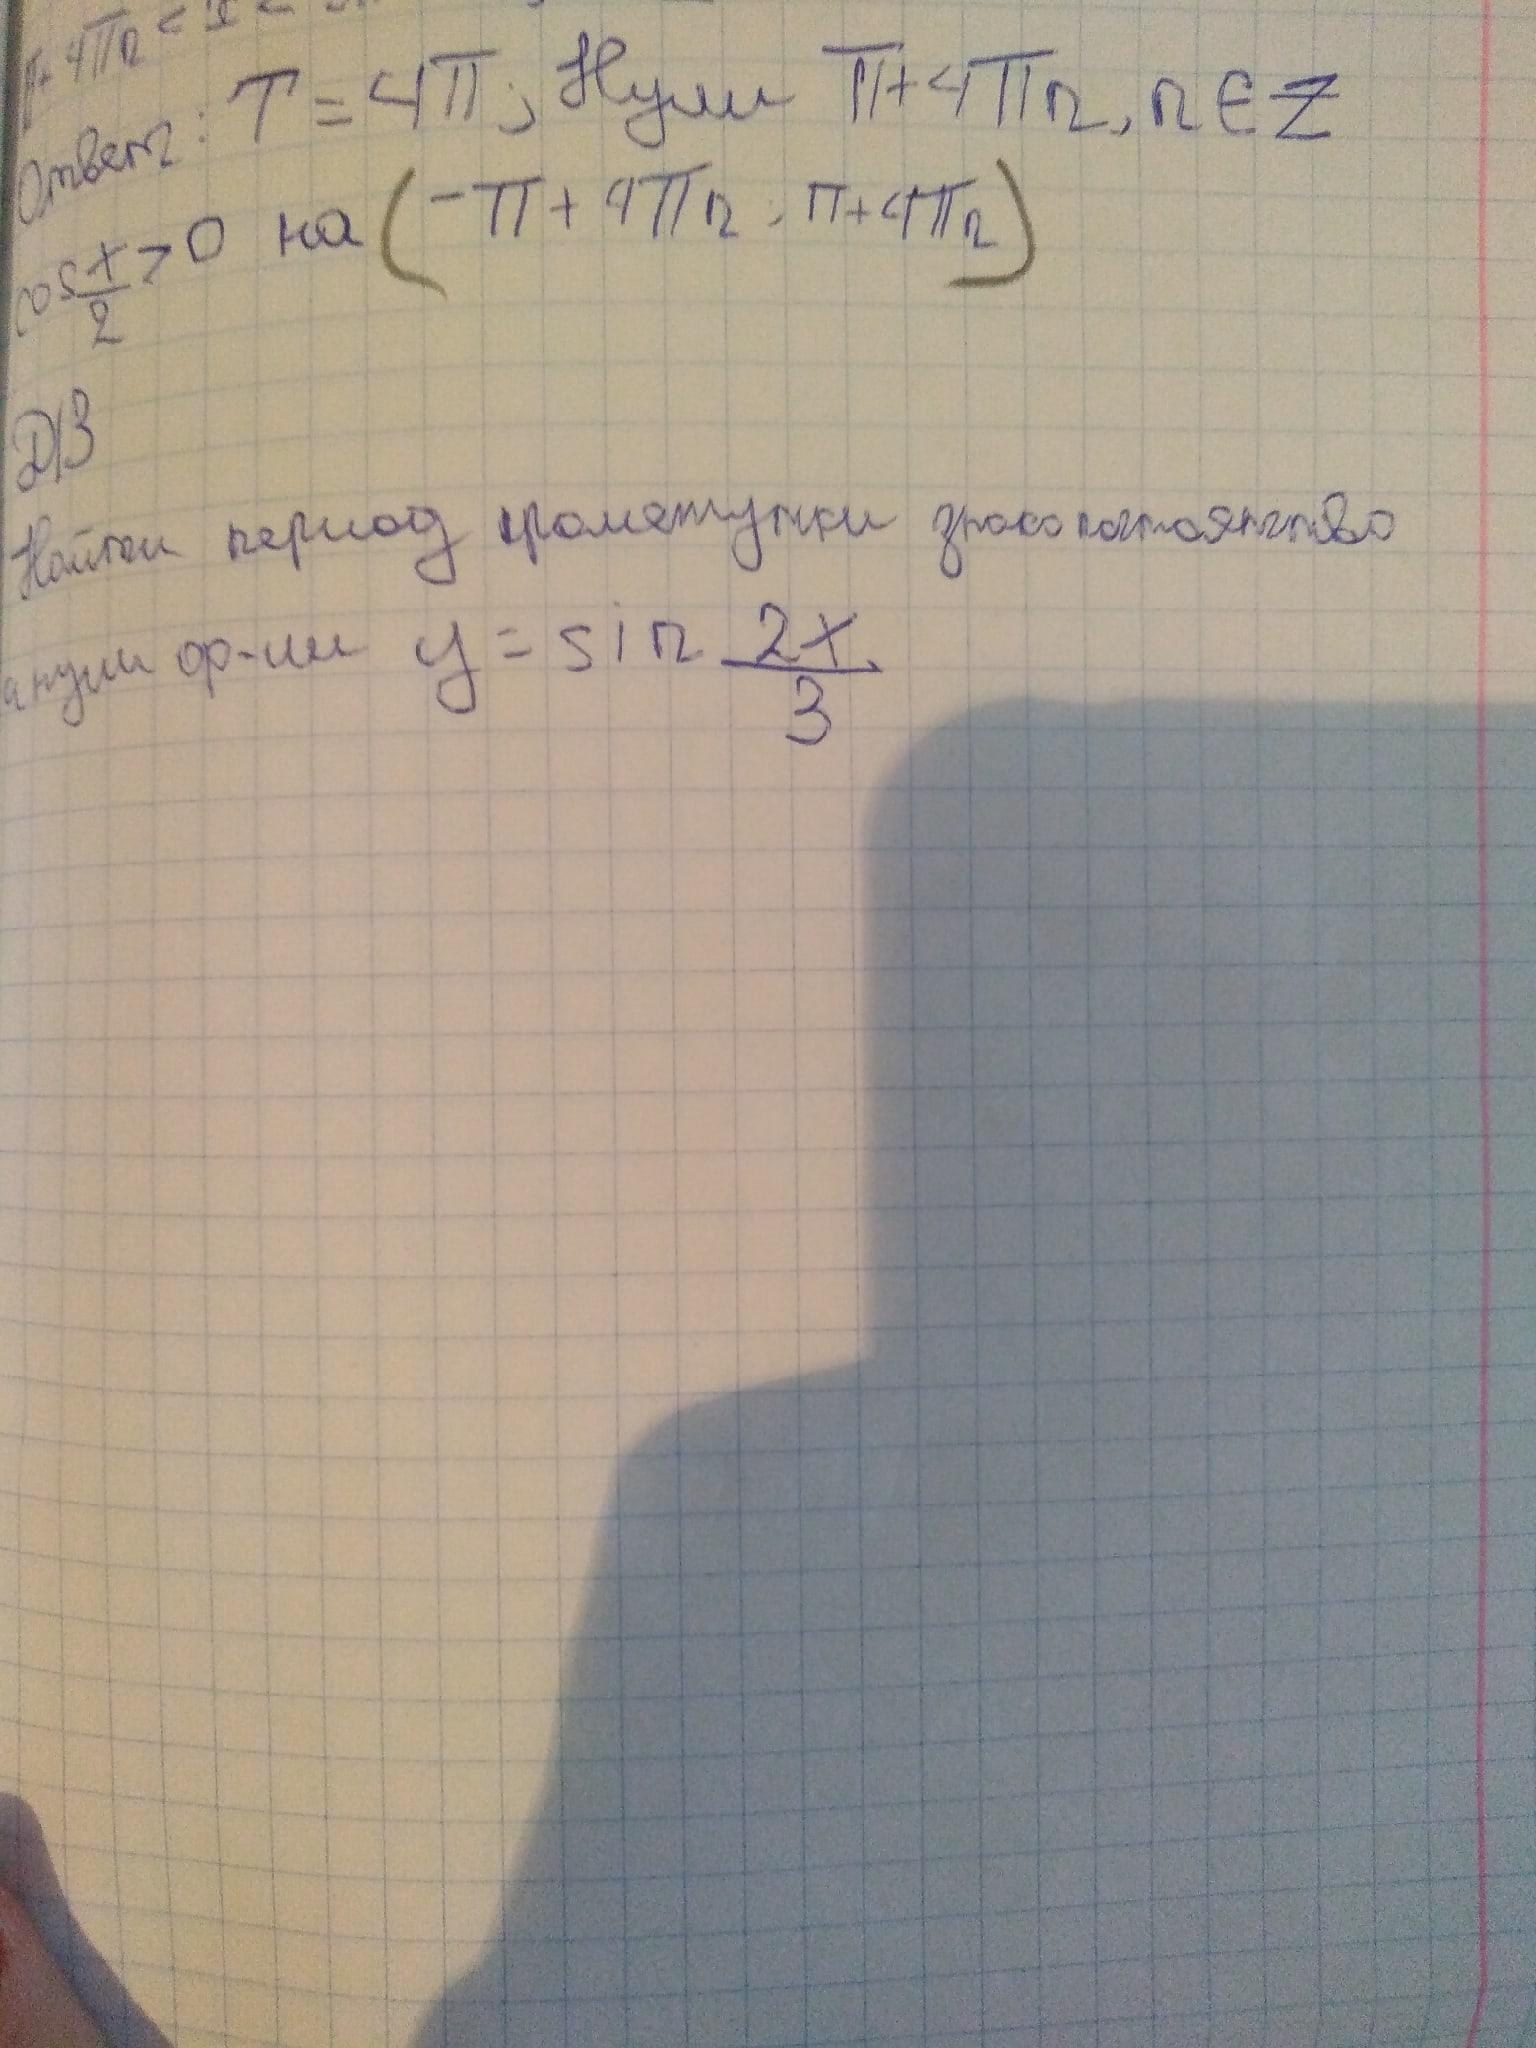 π+4πn <
Ответ: T = 4π; Нули π+4πn, n ∈ Z
cos x/2 > 0 на (-π+4πn; π+4πn)
Д/З
Найти период промежутки знакопостоянство
и нули ф-ии y = sin 2x/3